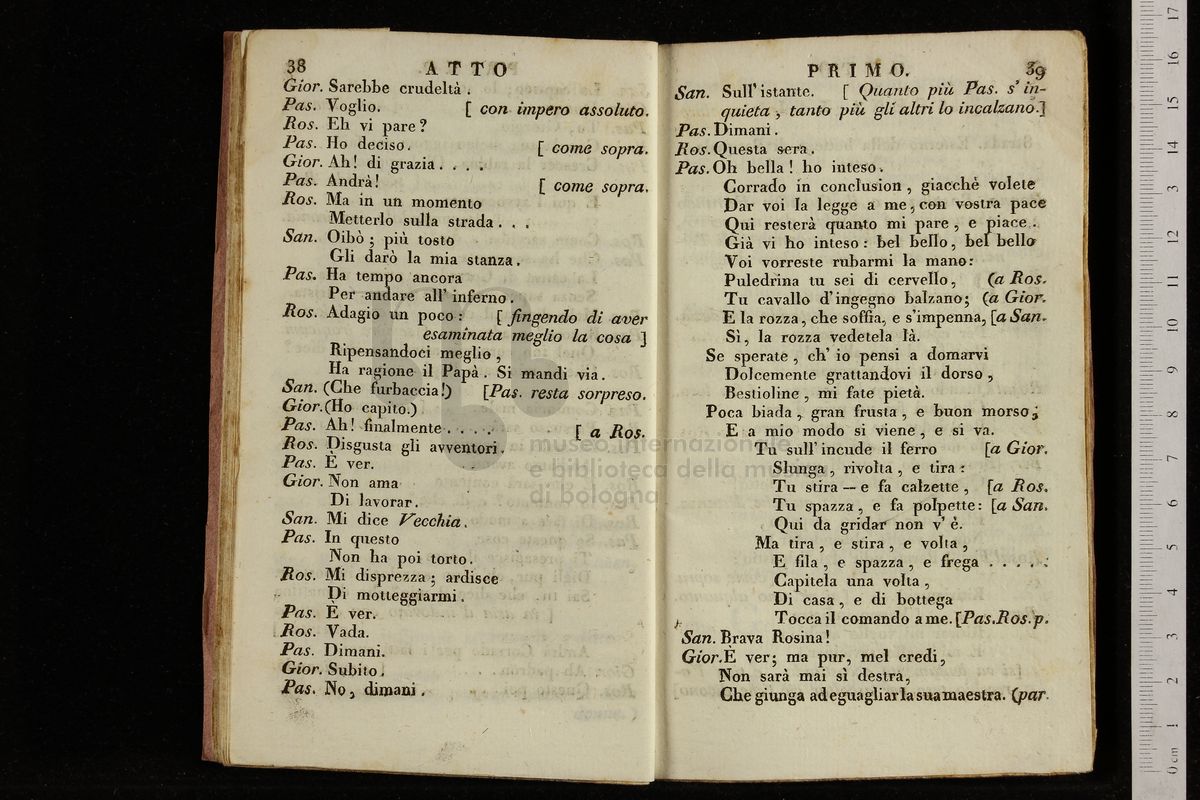 38 ATTO
Gior. Sarebbe crudeltà.
Pas. Voglio. [ con impero assoluto.
Ros. Eh vi pare?
Pas. Ho deciso. [ come sopra.
Gior. Ah! di grazia. . . .
Pas. Andrà! [ come sopra.
Ros. Ma in un momento
Metterlo sulla strada. . .
San. Oibò; più tosto
Gli darò la mia stanza.
Pas. Ha tempo ancora
Per andare all' inferno.
Ros. Adagio un poco: [ fingendo di aver
esaminata meglio la cosa ]
Ripensandoci meglio,
Ha ragione il Papà. Si mandi via.
San. (Che furbaccia!) [Pas. resta sorpreso.
Gior. (Ho capito.)
Pas. Ah! finalmente . . . . [ a Ros.
Ros. Disgusta gli avventori.
Pas. È ver.
Gior. Non ama
Di lavorar.
San. Mi dice Vecchia.
Pas. In questo
Non ha poi torto.
Ros. Mi disprezza; ardisce
Di motteggiarmi.
Pas. È ver.
Ros. Vada.
Pas. Dimani.
Gior. Subito.
Pas. No, dimani.
PRIMO. 39
San. Sull' istante. [ Quanto più Pas. s' in-
quieta, tanto più gli altri lo incalzano.]
Pas. Dimani.
Ros. Questa sera.
Pas. Oh bella! ho inteso.
Corrado in conclusion, giacchè volete
Dar voi la legge a me, con vostra pace
Qui resterà quanto mi pare, e piace.
Già vi ho inteso: bel bello, bel bello
Voi vorreste rubarmi la mano:
Puledrina tu sei di cervello, (a Ros.
Tu cavallo d'ingegno balzano; (a Gior.
E la rozza, che soffia, e s'impenna, [a San.
Sì, la rozza vedetela là.
Se sperate, ch' io pensi a domarvi
Dolcemente grattandovi il dorso,
Bestioline, mi fate pietà.
Poca biada, gran frusta, e buon morso,
E a mio modo si viene, e si va.
Tu sull' incude il ferro [a Gior.
Slunga, rivolta, e tira:
Tu stira — e fa calzette, [a Ros.
Tu spazza, e fa polpette: [a San.
Qui da gridar non v' è.
Ma tira, e stira, e volta,
E fila, e spazza, e frega . . . . .
Capitela una volta,
Di casa, e di bottega
Tocca il comando a me. [Pas. Ros. p.
San. Brava Rosina!
Gior. È ver; ma pur, mel credi,
Non sarà mai sì destra,
Che giunga ad eguagliar la sua maestra. (par.
museo internazionale
e biblioteca della musica
di bologna